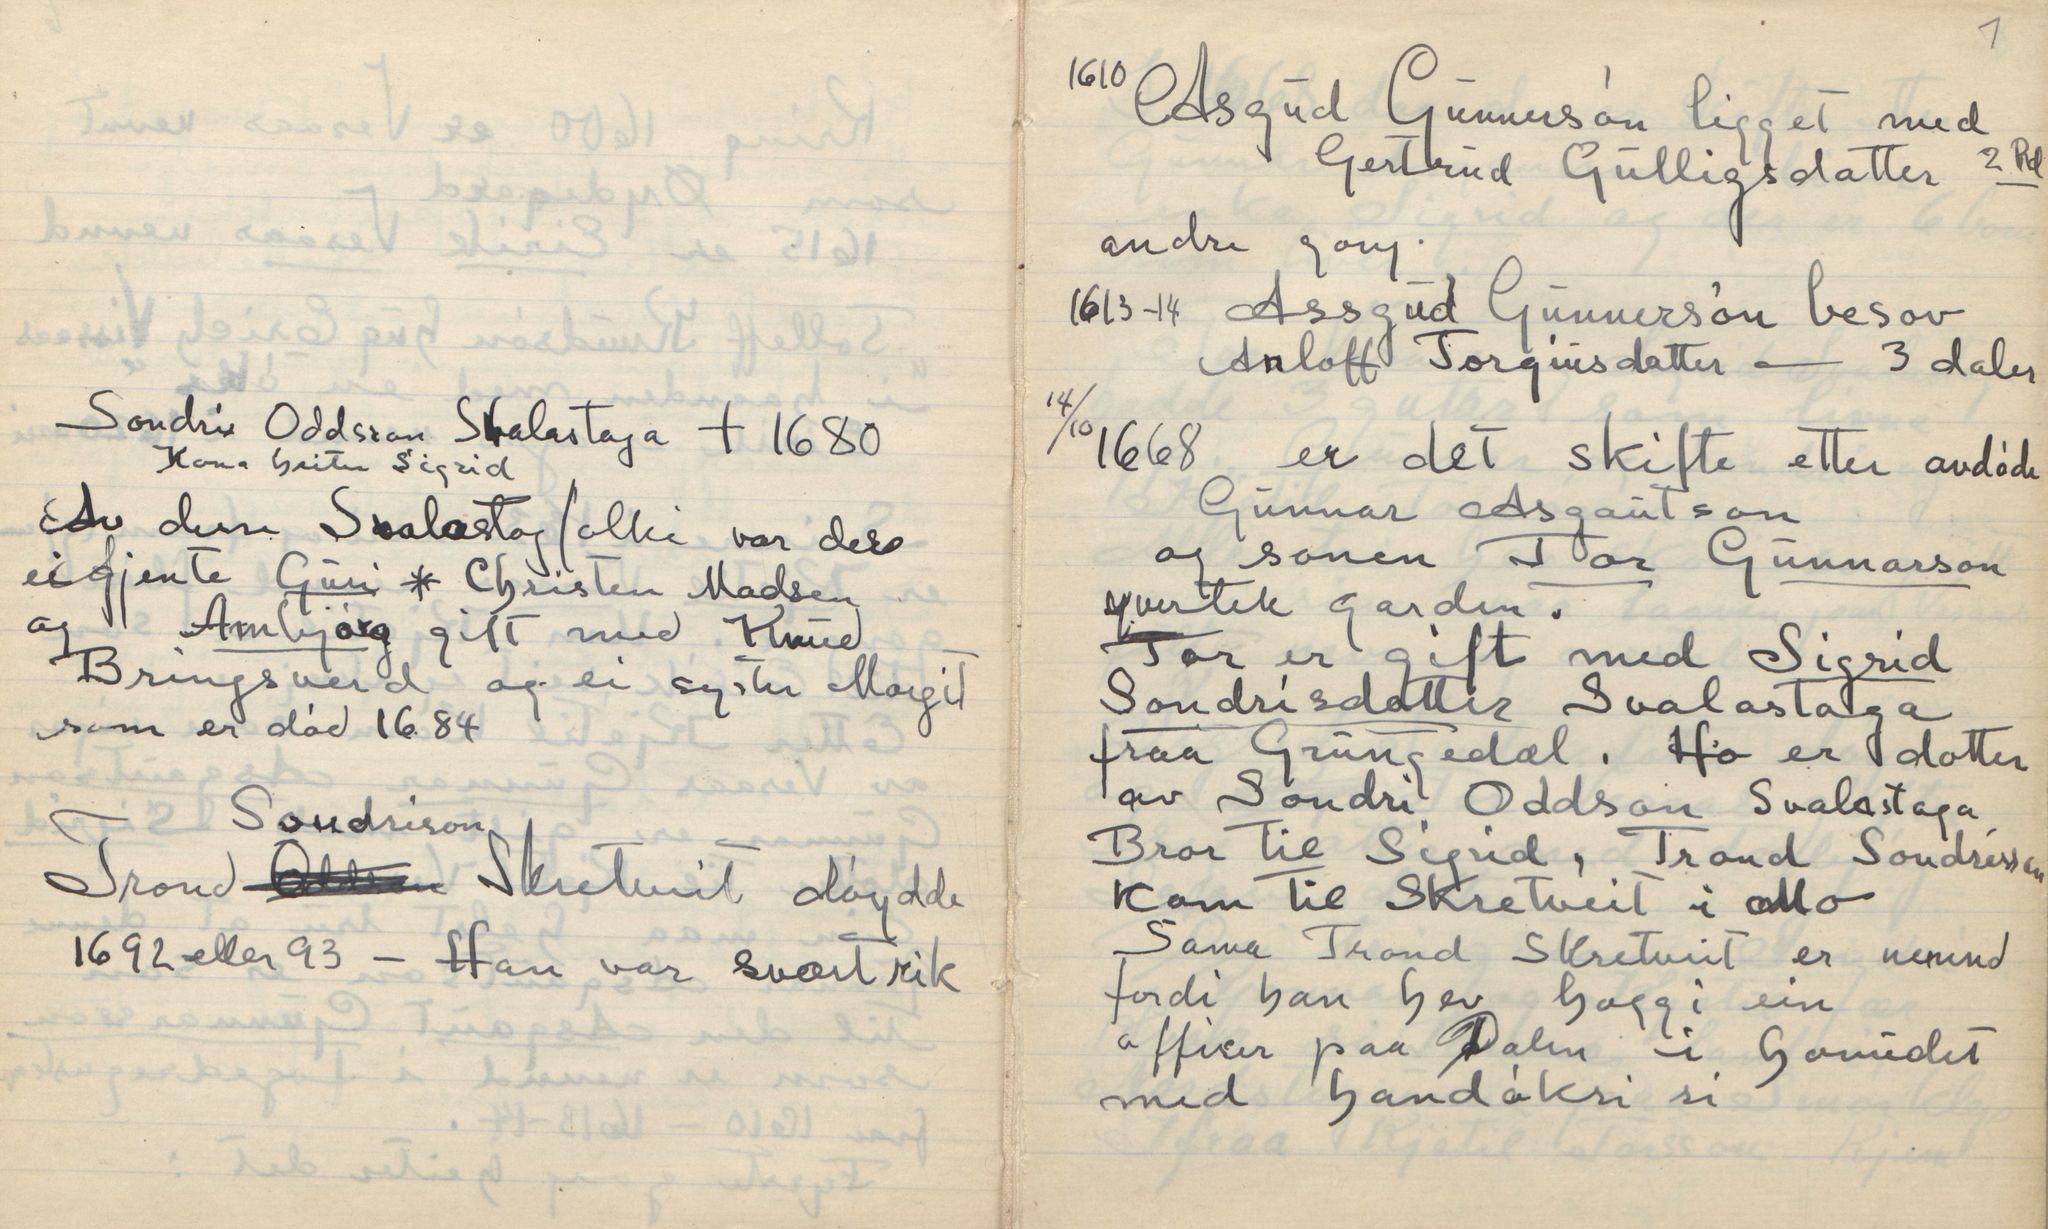 Sondre Oddsson Svalastoga + 1680
Kona heiter Sigrid
Av denne Svalastogfolki var der
ei gjente Gùri * Christen Madsen
og Ambjørg gift med Knùd
Bringsverd og ei syster Margit
som er død 1684
Sondrison
Trond Skretveit døydde
1692 eller 93 – Han var svært rik
1
1610 Asgùd Gùnnersón ligget med
Gertrùd Gùlligsdatter 2 Rd
andre gong.
1613-14 Assgùd Gùnnersón besov
Anloff Torgiusdatter — 3 daler
14/10 1668 er det skifte etter avdøde
Gùnnar Asgaùtson
og sonen Tor Gùnnarson
yvertek garden.
Tor er gift med Sigrid
Sondrisdotter Svalastoga
fraa Grùngedal. Ho er dotter
av Sondri Oddson Svalastoga
Bror til Sigrid, Trond Sondrisson
Kom til Skretveit i Mo
Sama Trond Skretveit er nemnd
fordi han hev hoggi ein
officer paa Dalen i hovùdet
med handøksi si